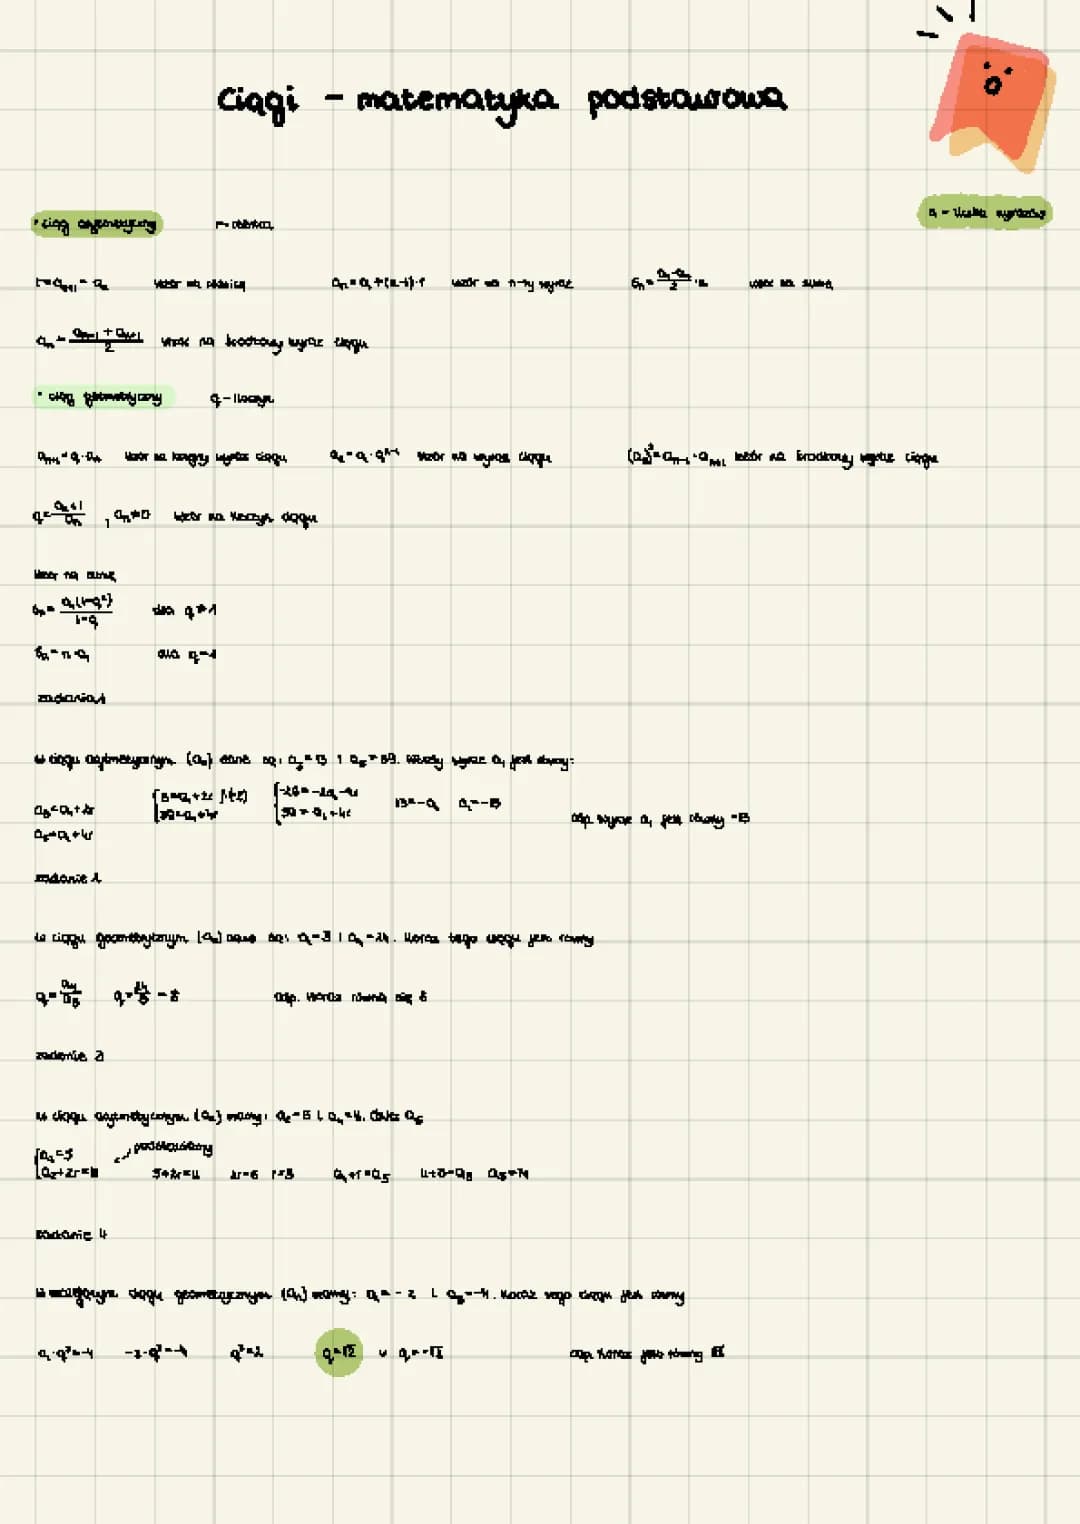 Ciągi - matematyka podstawowa
n - liczba wyrazów
• ciąg arytmetyczny r - różnica
r = aₙ₊₁ - aₙ wzór na różnicę aₙ = a₁ + (n-1)·r wzór na n-ty wyraz Sₙ = ·n wzór na sumę
aₙ = (aₙ₋₁ + aₙ₊₁)/2 wzór na środkowy wyraz ciągu
• ciąg geometryczny q - iloczyn
aₙ₊₁ = q·aₙ wzór na wyraz ciągu aₙ = a₁·qⁿ⁻¹ wzór na wyraz ciągu (aₙ)² = aₙ₋₁·aₙ₊₁ wzór na środkowy wyraz ciągu
q = aₙ₊₁/aₙ , aₙ ≠ 0 wzór na iloczyn ciągu
wzór na sumę
Sₙ = a₁(1-qⁿ)/(1-q) dla q ≠ 1
Sₙ = n·a₁ dla q = 1
zadanie 1
W ciągu arytmetycznym (aₙ) dane są: a₃ = 13 i a₅ = 39. Wtedy wyraz a₁ jest równy:
a₃ = a₁ + 2r
a₅ = a₁ + 4r
39 = a₁ + 4r
-26 = -2a₁ - 4r
39 = a₁ + 4r
13 = -a₁ a₁ = -13
Odp. Wyraz a₁ jest równy -13
zadanie 2
W ciągu geometrycznym (aₙ) dane są: i a₄ = 24. Iloraz tego ciągu jest równy
q = 24/3 = 8 Odp. Iloraz równa się 8
zadanie 3
W ciągu arytmetycznym (aₙ) mamy: a₂ = 5 i a₄ = 11. Oblicz a₅
a₂ = 5
a₂ + 2r = 11
5 + 2r = 11 2r = 6 r = 3 a₄ + r = a₅ 11 + 3 = a₅ a₅ = 14
zadanie 4
W ciągu geometrycznym (aₙ) mamy: a₁ = -2 i a₃ = -4. Iloraz tego ciągu jest równy
a₁·q² = -4 -2·q² = -4 q² = 2 q = √2 v q = -√2 Odp. Iloraz jest równy √2